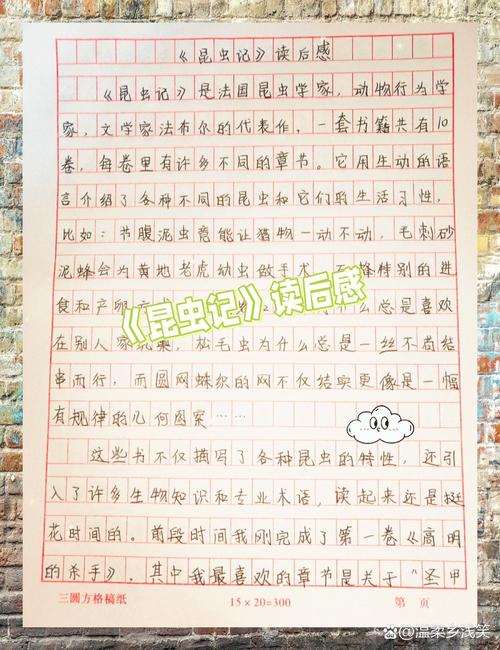 《昆虫记》读后感
《昆虫记》是法国昆虫学家，动物行为学
家，文学家法布尔的代表作，一套书籍共有10
卷，每卷里有许多不同的章节。它用生动的语
言介绍了各种不同的昆虫和它们的生活习性，
比如：节腹泥虫竟能让猎物一动不动，毛刺砂
泥蜂会为黄地老虎幼虫做手术，特别的进
食和产卵方么总是喜欢
《昆虫记》读后感
在别人家筑巢，松毛虫为什么总是一丝不苟结
串而行，而圆网蛛织的网不仅结实更像是一幅
有规律的几何图案……
这些书不仅描写了各种昆虫的特性，还引
入了许多生物知识和专业术语，读起来还是挺
花时间的。前段时间我刚完成了第一卷《高明
的杀手》，其中我最喜欢的章节是关于“圣甲
三圆方格稿纸 15×20=300 第 页
百家号/温柔乡浅笑